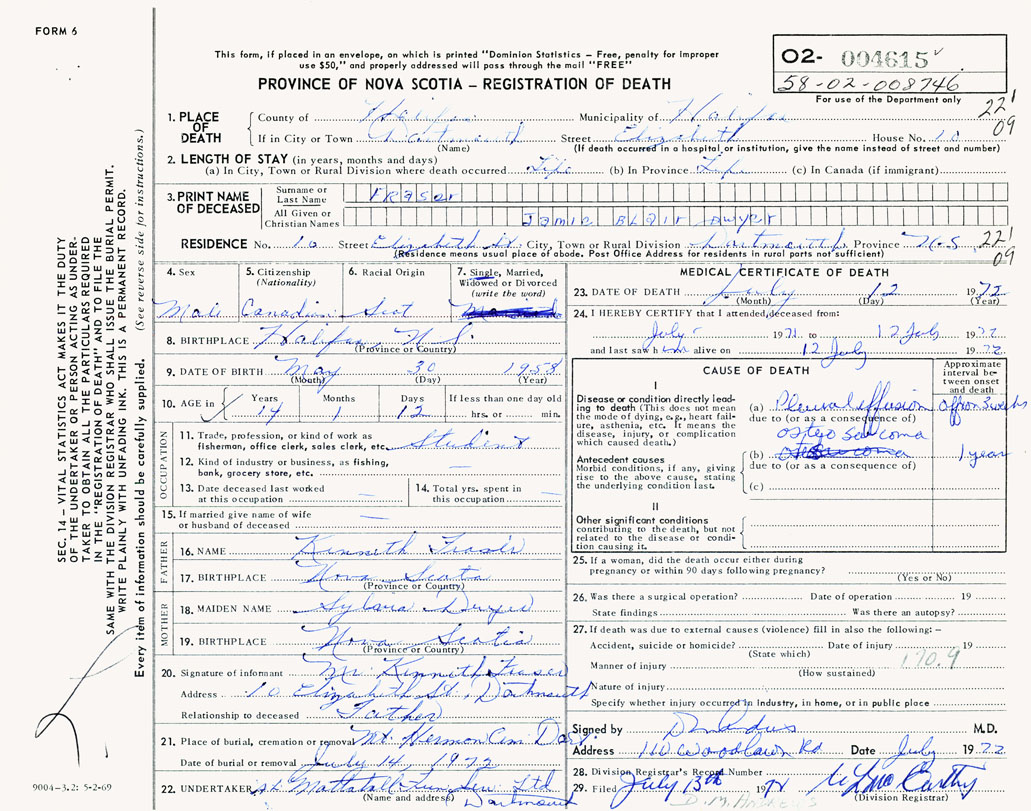 FORM 6
This form, if placed in an envelope, on which is printed "Dominion Statistics – Free, penalty for improper
use $50," and properly addressed will pass through the mail "FREE"
PROVINCE OF NOVA SCOTIA – REGISTRATION OF DEATH
02- 004615
58-02-008746
For use of the Department only
221
09
1. PLACE OF DEATH
County of Halifax Municipality of Halifax
If in City or Town Dartmouth Street Elizabeth House No. 10
(Name) (If death occurred in a hospital or institution, give the name instead of street and number)
2. LENGTH OF STAY (in years, months and days)
(a) In City, Town or Rural Division where death occurred Life (b) In Province Life (c) In Canada (if immigrant)
3. PRINT NAME OF DECEASED
Surname or Last Name Fraser
All Given or Christian Names Jamie Blair Dwyer
RESIDENCE No. 10 Street Elizabeth St. City, Town or Rural Division Dartmouth Province N.S. 221
09
(Residence means usual place of abode. Post Office Address for residents in rural parts not sufficient)
4. Sex
Male
5. Citizenship
(Nationality)
Canadian
6. Racial Origin
Scot
7. Single, Married,
Widowed or Divorced
(write the word)
8. BIRTHPLACE Halifax N.S.
(Province or Country)
9. DATE OF BIRTH May 30 1958
(Month) (Day) (Year)
10. AGE in
Years Months Days If less than one day old
14 1 12 hrs. or min.
OCCUPATION
11. Trade, profession, or kind of work as
fisherman, office clerk, sales clerk, etc. Student
12. Kind of industry or business, as fishing,
bank, grocery store, etc. —
13. Date deceased last worked
at this occupation —
14. Total yrs. spent in
this occupation —
15. If married give name of wife
or husband of deceased —
FATHER
16. NAME Kenneth Fraser
17. BIRTHPLACE Nova Scotia
(Province or Country)
MOTHER
18. MAIDEN NAME Sylvia Dwyer
19. BIRTHPLACE Nova Scotia
(Province or Country)
20. Signature of informant Mr. Kenneth Fraser
Address 10 Elizabeth St., Dartmouth
Relationship to deceased Father
21. Place of burial, cremation or removal Mt. Hermon Cem Dart.
Date of burial or removal July 14, 1972
22. UNDERTAKER Mattatall Fun. Ltd
(Name and address) Dartmouth
MEDICAL CERTIFICATE OF DEATH
23. DATE OF DEATH July 12 1972
(Month) (Day) (Year)
24. I HEREBY CERTIFY that I attended deceased from:
July 1971 to 12 July 1972
and last saw him alive on 12 July 1972
CAUSE OF DEATH
Approximate
interval be-
tween onset
and death
I
Disease or condition directly lead-
ing to death (This does not mean
the mode of dying, e.g., heart fail-
ure, asthenia, etc. It means the
disease, injury, or complication
which caused death.)
(a) Pleural effusion 3 weeks
due to (or as a consequence of)
osteo sarcoma
Antecedent causes
Morbid conditions, if any, giving
rise to the above cause, stating
the underlying condition last.
(b) 1 year
due to (or as a consequence of)
(c)
II
Other significant conditions
contributing to the death, but not
related to the disease or condi-
tion causing it.
25. If a woman, did the death occur either during
pregnancy or within 90 days following pregnancy?
(Yes or No)
26. Was there a surgical operation? Date of operation 19
State findings Was there an autopsy?
27. If death was due to external causes (violence) fill in also the following: –
Accident, suicide or homicide? Date of injury 19
(State which)
Manner of injury 170.9
(How sustained)
Nature of injury
Specify whether injury occurred in industry, in home, or in public place
Signed by M.D.
Address 110 Woodlawn Rd Date July 1972
28. Division Registrar's Record Number
29. Filed July 13th 19
(Division Registrar)
SEC. 14 – VITAL STATISTICS ACT MAKES IT THE DUTY
OF THE UNDERTAKER OR PERSON ACTING AS UNDER-
TAKER TO OBTAIN ALL THE PARTICULARS REQUIRED
IN THE "REGISTRATION OF DEATH" AND TO FILE THE
SAME WITH THE DIVISION REGISTRAR WHO SHALL ISSUE THE BURIAL PERMIT.
WRITE PLAINLY WITH UNFADING INK. THIS IS A PERMANENT RECORD.
Every item of information should be carefully supplied. (See reverse side for instructions.)
9004-3.2: 5-2-69